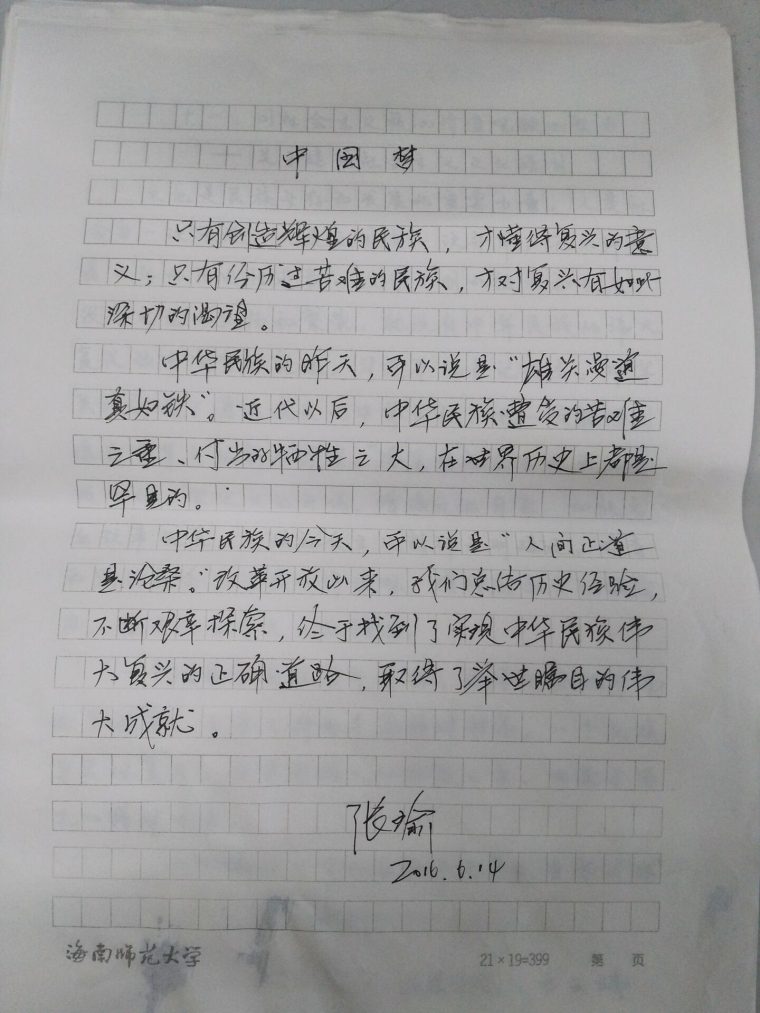 中国梦
只有创造辉煌的民族，才懂得复兴的意
义；只有经历过苦难的民族，才对复兴有如此
深切的渴望。
中华民族的昨天，可以说是“雄关漫道
真如铁”。近代以后，中华民族遭受的苦难
之重、付出的牺牲之大，在世界历史上都是
罕见的。
中华民族的今天，可以说是“人间正道
是沧桑。”改革开放以来，我们总结历史经验，
不断艰辛探索，终于找到了实现中华民族伟
大复兴的正确道路，取得了举世瞩目的伟
大成就。
张瑜
2016.6.14
海南师范大学
21×19=399 第 页